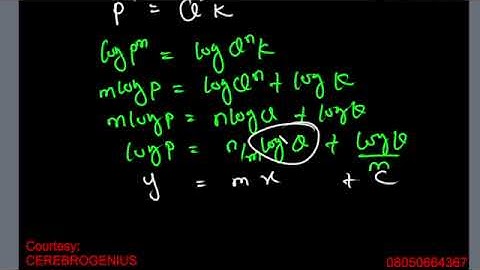 p = Q k
log pᵐ = log Qⁿ k
m log p = log Qⁿ + log k
m log p = n log Q + log k
log p = n/m log Q + log k/m
y = m x + c
Courtesy:
CEREBROGENIUS
08050664367